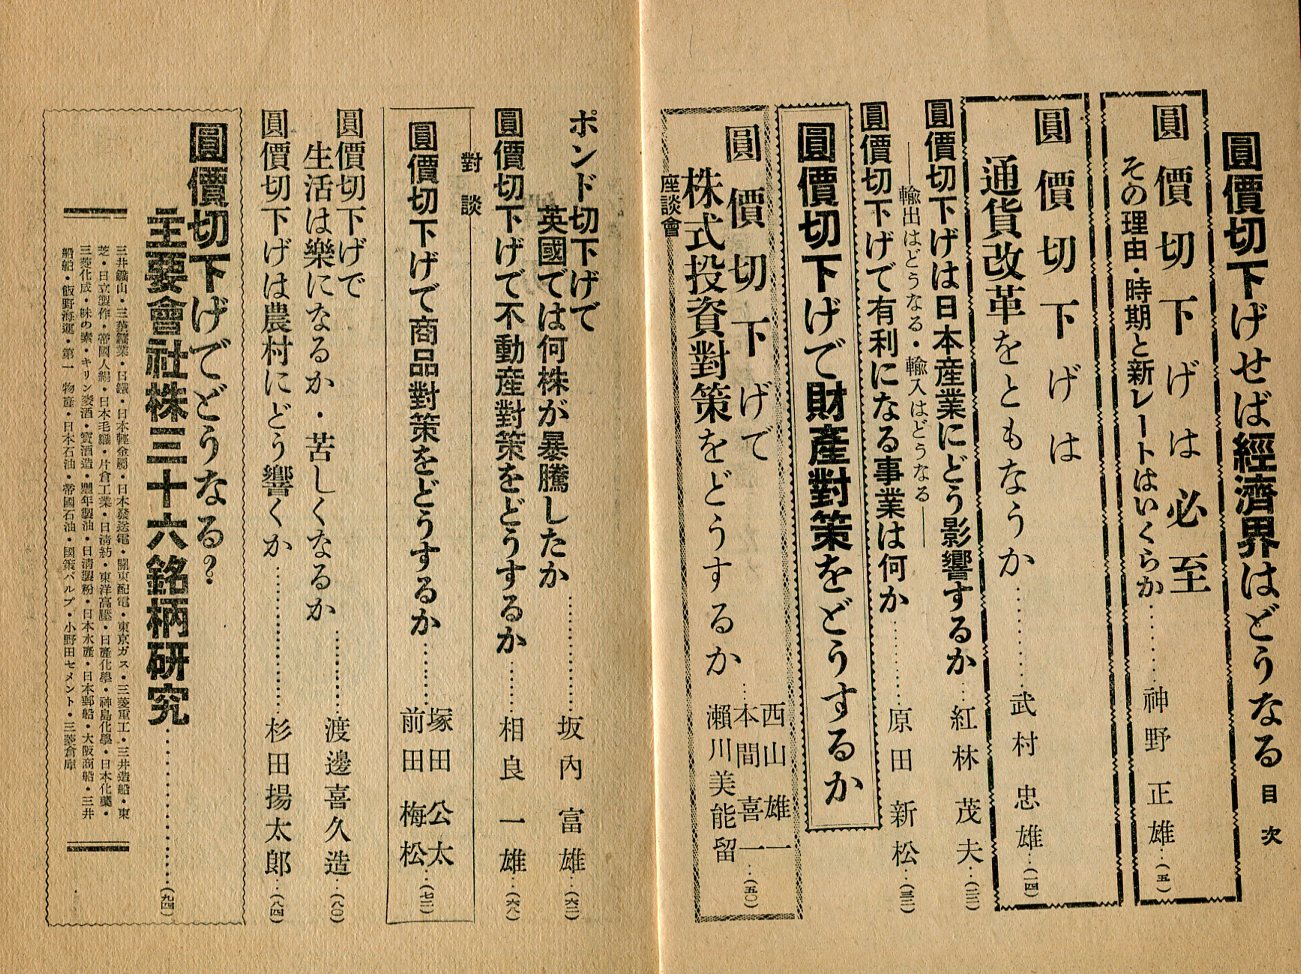 圓價切下げせば經濟界はどうなる 目次
圓價切下げは必至
その理由・時期と新レートはいくらか………神野正雄…(五)
圓價切下げは
通貨改革をともなうか………武村忠雄…(一四)
圓價切下げは日本産業にどう影響するか…紅林茂夫…(二二)
――輸出はどうなる・輸入はどうなる――
圓價切下げで有利になる事業は何か………原田新松…(三二)
圓價切下げで財産對策をどうするか
圓價切下げで
株式投資對策をどうするか
座談會
西山雄一
本間喜一
瀬川美能留…(五〇)
ポンド切下げで
英國では何株が暴騰したか………坂内富雄…(六二)
圓價切下げで不動産對策をどうするか………相良一雄…(六八)
對談
圓價切下げで商品對策をどうするか………
塚田公太
前田梅松…(七二)
圓價切下げで
生活は樂になるか・苦しくなるか………渡邊喜久造…(八〇)
圓價切下げは農村にどう響くか………杉田揚太郎…(八四)
圓價切下げでどうなる?
主要會社株三十六銘柄研究………(九四)
三井鑛山・三菱鑛業・日鐵・日本輕金屬・日本發送電・關東配電・東京ガス・三菱重工・三井造船・東
芝・日立製作・帝國人絹・日本毛織・片倉工業・日清紡・東洋高壓・日産化學・神島化學・日本化藥・
三菱化成・味の素・キリン麥酒・寶酒造・豐年製油・日清製粉・日本水産・日本郵船・大阪商船・三井
船舶・飯野海運・第一物産・日本石油・帝國石油・國策パルプ・小野田セメント・三菱倉庫